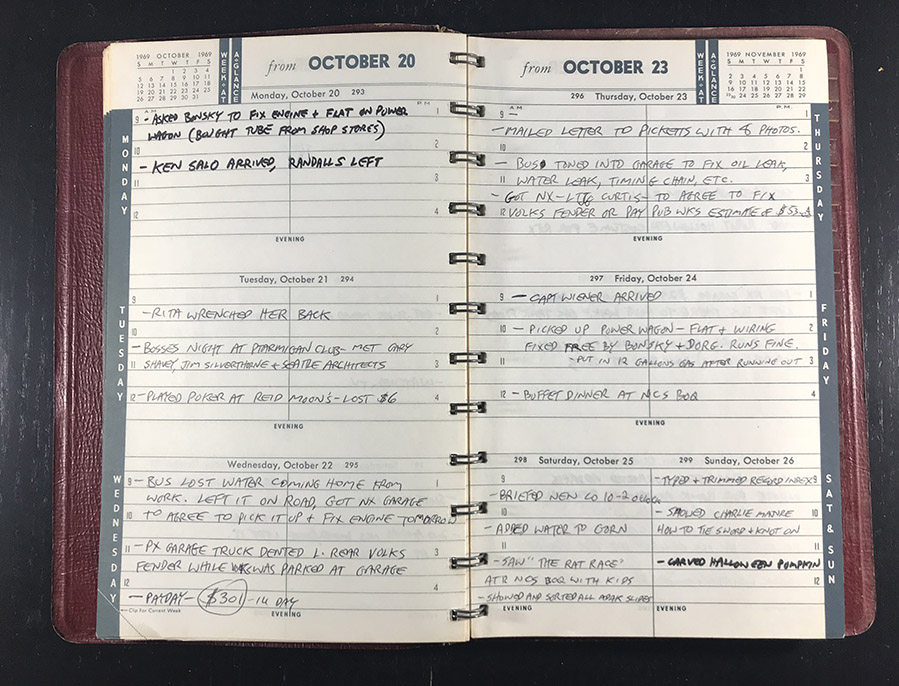 1969 OCTOBER 1969
S M T W T F S
1 2 3 4
5 6 7 8 9 10 11
12 13 14 15 16 17 18
19 20 21 22 23 24 25
26 27 28 29 30 31
WEEK-AT
A-GLANCE
from OCTOBER 20
Monday, October 20 293
MONDAY
A.M. P.M.
9 - ASKED BONSKY TO FIX ENGINE + FLAT ON POWER 1
WAGON (BOUGHT TUBE FROM SHOP STORES)
10 2
- KEN SALO ARRIVED, RANDALLS LEFT
11 3
12 4
EVENING
Tuesday, October 21 294
TUESDAY
9 1
- RITA WRENCHED HER BACK
10 2
- BOSSES NIGHT AT PTARMIGAN CLUB - MET GARY
11 SHAVEY, JIM SILVERTHORNE + SEATTLE ARCHITECTS 3
12 - PLAYED POKER AT REID MOON'S - LOST $6 4
EVENING
Wednesday, October 22 295
WEDNESDAY
9 - BUS LOST WATER COMING HOME FROM 1
WORK. LEFT IT ON ROAD, GOT NX GARAGE
10 TO AGREE TO PICK IT UP + FIX ENGINE TOMORROW
11 - PX GARAGE TRUCK DENTED L. REAR VOLKS 3
FENDER WHILE WAS PARKED AT GARAGE
12 4
- PAYDAY - $301 - 14 DAY
Clip For Current Week
EVENING
from OCTOBER 23
WEEK-AT
A-GLANCE
1969 NOVEMBER 1969
S M T W T F S
1
2 3 4 5 6 7 8
9 10 11 12 13 14 15
16 17 18 19 20 21 22
23/30 24 25 26 27 28 29
296 Thursday, October 23
THURSDAY
A.M. P.M.
9 - 1
- MAILED LETTER TO PICKETTS WITH 8 PHOTOS.
10 2
- BUS TOWED INTO GARAGE TO FIX OIL LEAK,
11 WATER LEAK, TIMING CHAIN, ETC. 3
- GOT NX - LTJG CURTIS - TO AGREE TO FIX
12 VOLKS FENDER OR PAY PUB WKS ESTIMATE OF
EVENING
297 Friday, October 24
FRIDAY
9 - CAPT WIENER ARRIVED 1
10 - PICKED UP POWER WAGON - FLAT + WIRING 2
FIXED FREE BY BONSKY + DORG. RUNS FINE.
11 - PUT IN 12 GALLONS GAS AFTER RUNNING OUT 3
12 - BUFFET DINNER AT NCS BOQ 4
EVENING
298 Saturday, October 25
SAT & SUN
9
- BRIEFED NEW CO 10-2 O'CLOCK
10
- ADDED WATER TO CORN
11
- SAW "THE RAT RACE"
AT NCS BOQ WITH KIDS
- SHOWED AND SORTED ALL ADAK SLIDES
EVENING
299 Sunday, October 26
- TYPED + TRIMMED RECORD INDEX 9
- SHOWED CHARLIE MANRE 10
HOW TO TIE SWORD + KNOT ON
11
- CARVED HALLOWEEN PUMPKIN
12
EVENING